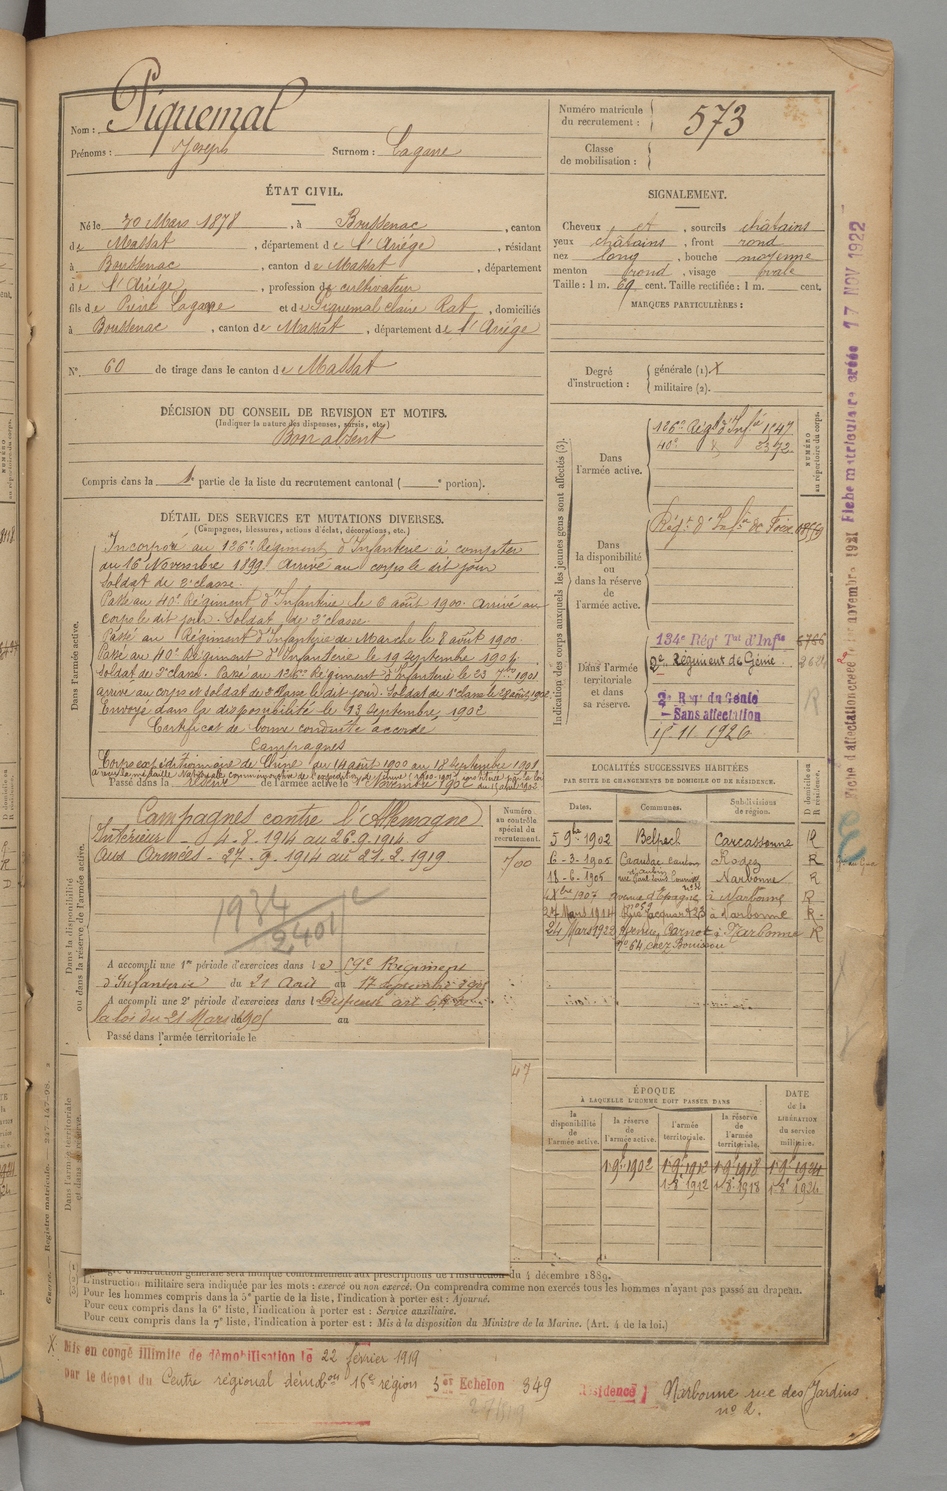 Nom : Piquemal
Prénoms : Joseph Surnom : Lagarre
Numéro matricule du recrutement : 573
Classe de mobilisation :
ÉTAT CIVIL.
Né le 20 Mars 1878, à Boussenac, canton
de Massat, département de l'Ariége, résidant
à Boussenac, canton de Massat, département
de l'Ariége, profession de cultivateur
fils de Pierre Lagarre et de Piquemal Claire Rat, domiciliés
à Boussenac, canton de Massat, département de l'Ariége
N° 60 de tirage dans le canton de Massat
SIGNALEMENT.
Cheveux et, sourcils châtains
yeux châtains, front rond
nez long, bouche moyenne
menton frond, visage ovale
Taille : 1 m. 69 cent. Taille rectifiée : 1 m. cent.
MARQUES PARTICULIÈRES :
Degré d'instruction : générale (1). X
militaire (2).
DÉCISION DU CONSEIL DE REVISION ET MOTIFS.
(Indiquer la nature des dispenses, sursis, etc.)
Bon absent
Compris dans la 1e partie de la liste du recrutement cantonal ( e portion).
DÉTAIL DES SERVICES ET MUTATIONS DIVERSES.
(Campagnes, blessures, actions d'éclat, décorations, etc.)
Dans l'armée active.
Incorporé au 126e Régiment d'Infanterie à compter
du 16 Novembre 1899. Arrivé au corps le dit jour
Soldat de 2e classe.
Passé au 40e Régiment d'Infantrie le 6 août 1900. Arrivé au
corps le dit jour. Soldat de 2e classe.
Passé au Régiment d'Infanterie de Marche le 8 août 1900.
Passé au 40e Régiment d'Infanterie le 19 Septembre 1901.
Soldat de 2e class. Passé au 126e Régiment d'Infanterie le 23 7bre 1901
arrivé au corps et soldat de 2e classe le dit jour. Soldat de 1e classe le 28 août 1902.
Envoyé dans la disponibilité le 13 Septembre 1902
Certificat de bonne conduite accordé
Campagnes
Corps expéditionnaire de Chine du 14 août 1900 au 18 Septembre 1901
Passé dans la réserve de l'armée active le 1 Novembre 1902
Indication des corps auxquels les jeunes gens sont affectés (3).
NUMÉRO au répertoire du corps.
Dans l'armée active.
126e Régt d'Infie 1947
40e d° 3372.
Dans la disponibilité ou dans la réserve de l'armée active.
Régt d'Infie de Foix
Dans l'armée territoriale et dans sa réserve.
134e Régt Tal d'Infie
2e Régiment de Génie.
2e Regt du Génie
— Sans affectation
15 11 1926
R
Dans la disponibilité ou dans la réserve de l'armée active.
Campagnes contre l'Allemagne
Intérieur - 4.8.1914 au 26.9.1914
Aux Armées - 27.9.1914 au 21.2.1919
1934
2401
Numéro au contrôle spécial du recrutement.
700
A accompli une 1re période d'exercices dans le 59e Régiment
d'Infanterie du 21 Août au 17 Septembre 1905
A accompli une 2e période d'exercices dans l Dispensé art
la loi du 21 Mars 1905 au
Passé dans l'armée territoriale le
47
LOCALITÉS SUCCESSIVES HABITÉES
PAR SUITE DE CHANGEMENTS DE DOMICILE OU DE RÉSIDENCE.
D domicile ou R résidence.
Dates. Communes. Subdivisions de région.
5 9bre 1902 Belpech Carcassonne R
6-3-1905 Rodez R
18-6-1905 Narbonne R
1907 avenue d'Espagne à Narbonne R
27 Mars 1914 Rue Jacquard 23 à Narbonne R
24 Mars 1923 Avenue Carnot à Narbonne R
n° 64 chez Bouissou
ÉPOQUE
À LAQUELLE L'HOMME DOIT PASSER DANS
DATE de la LIBÉRATION du service militaire.
la disponibilité de l'armée active. la réserve de l'armée active. l'armée territoriale. la réserve de l'armée territoriale.
1 9e 1902 1 9e 1912 1 9e 1918 1 9e 1924
1 8e 1912 1 8 1918 1 8e 1924
Dans l'armée territoriale
L'instruction militaire sera indiquée par les mots : exercé ou non exercé. On comprendra comme non exercés tous les hommes n'ayant pas passé au drapeau.
Pour les hommes compris dans la 5e partie de la liste, l'indication à porter est : Ajourné.
Pour ceux compris dans la 6e liste, l'indication à porter est : Service auxiliaire.
Pour ceux compris dans la 7e liste, l'indication à porter est : Mis à la disposition du Ministre de la Marine. (Art. 4 de la loi.)
X Mis en congé illimité de démobilisation le 22 février 1919
par le dépot du Centre régional démobon 16e région 3e Echelon 349 Résidence Narbonne rue des Jardins
n° 2.
Fiche matriculaire créée 17 NOV 1922